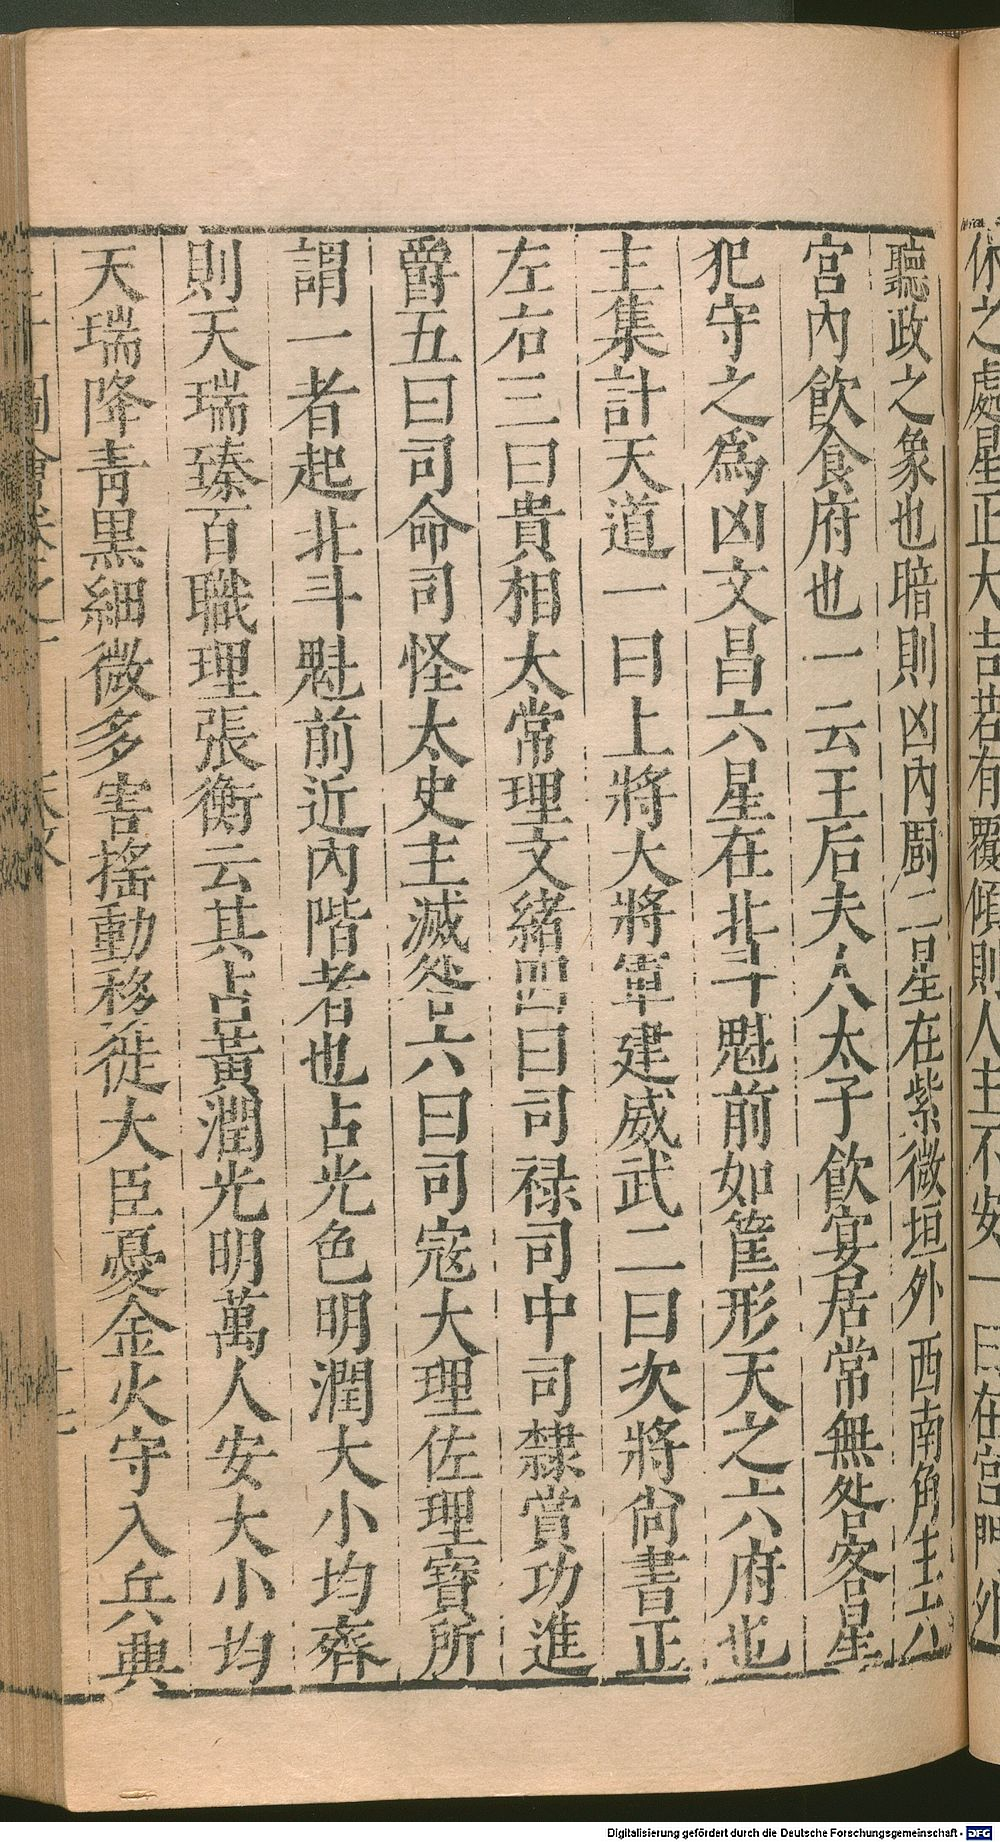 休之處星正大吉若有覆傾則人主不安一曰在宮門外
聽政之象也暗則凶內厨二星在紫微垣外西南角主六
宮內飲食府也一云王后夫人太子飲宴居常無咎客星
犯守之為凶文昌六星在北斗魁前如筐形天之六府也
主集計天道一曰上將大將軍建威武二曰次將尚書正
左右三曰貴相太常理文緒四曰司祿司中司隸賞功進
爵五曰司命司怪太史主滅咎六曰司寇大理佐理寶所
謂一者起北斗魁前近內階者也占光色明潤大小均齊
則天瑞臻百職理張衡云其占黃潤光明萬人安大小均
天瑞降青黑細微多害搖動移徙大臣憂金火守入兵典
Digitalisierung gefördert durch die Deutsche Forschungsgemeinschaft - DFG